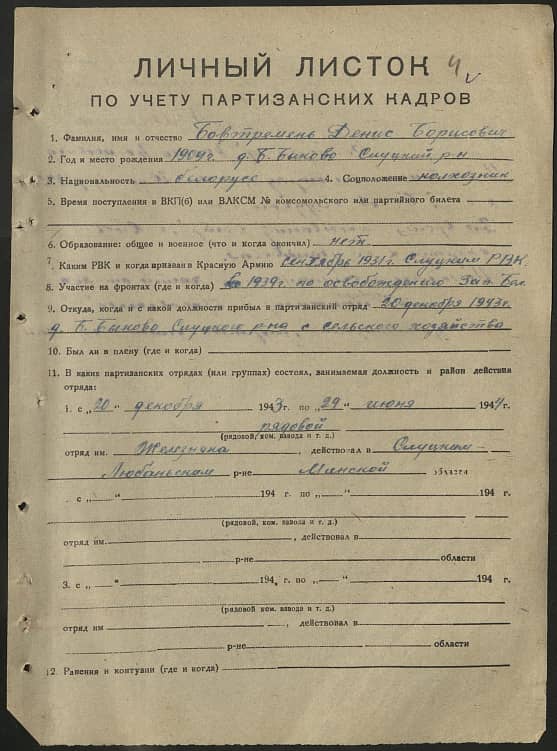 ЛИЧНЫЙ ЛИСТОК 4
ПО УЧЕТУ ПАРТИЗАНСКИХ КАДРОВ
1. Фамилия, имя и отчество Бовтремень Денис Борисович
2. Год и место рождения 1909 г. д. Б. Быково Слуцкий р-н
3. Национальность белорус 4. Соцположение колхозник
5. Время поступления в ВКП(б) или ВЛКСМ № комсомольского или партийного билета
6. Образование: общее и военное (что и когда окончил) нет
7. Каким РВК и когда призван в Красную Армию сентябрь 1931 г. Слуцким РВК
8. Участие на фронтах (где и когда) в 1939 г. по освобождению Зап. Бел.
9. Откуда, когда и с какой должности прибыл в партизанский отряд 20 декабря 1943 г.
д. Б. Быково Слуцкого р-на с сельского хозяйства
10. Был ли в плену (где и когда)
11. В каких партизанских отрядах (или группах) состоял, занимаемая должность и район действия
отряда:
1. с „20“ декабря 1943 г. по „29“ июня 1944 г.
рядовой
(рядовой, ком. взвода и т. д.)
отряд им. Железняка, действовал в Слуцким-
Любаньском р-не Минской области
. с „ “ 194 г. по „ “ 194 г.
(рядовой, ком. завода и т. д.)
отряд им. , действовал в
р-не области
3. с „ “ 194 г. по „ “ 194 г.
(рядовой ком. взвода и т. д.)
отряд им , действовал в
р-не области
12. Ранения и контузии (где и когда)